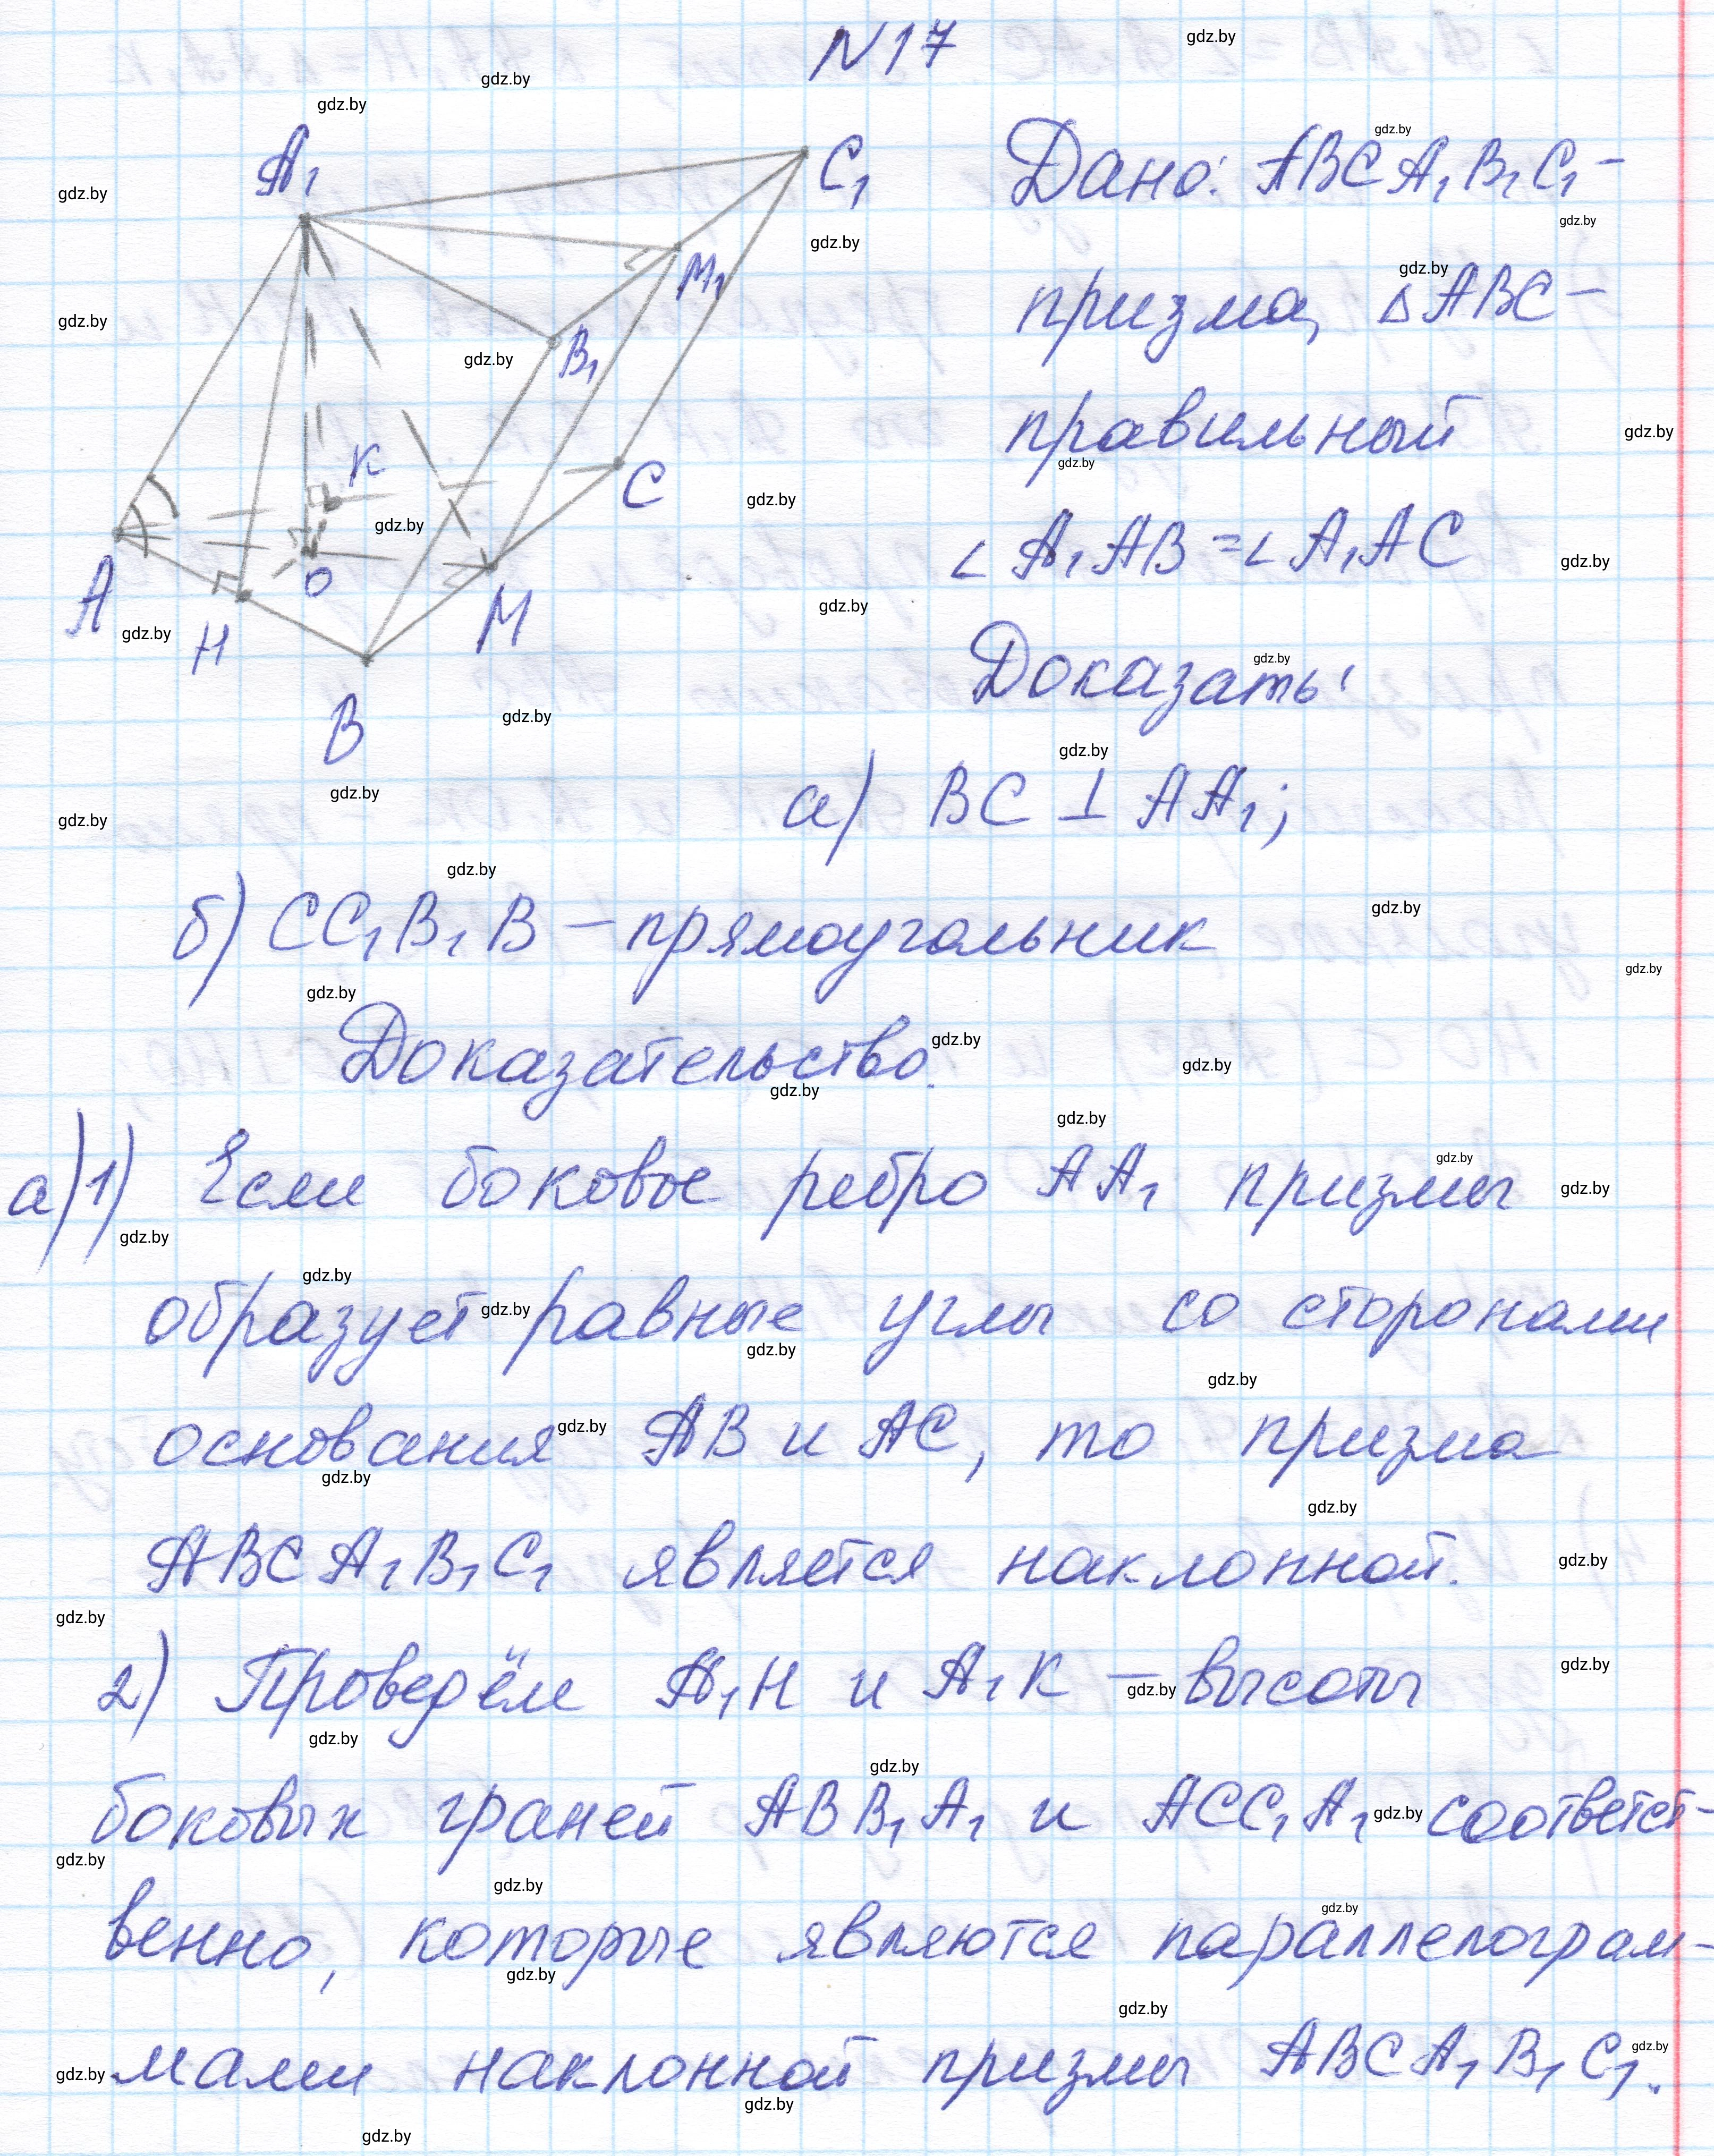 N17
Дано: ABCA₁B₁C₁ –
призма, ΔABC –
правильный
∠A₁AB = ∠A₁AC
Доказать:
а) BC ⊥ AA₁;
б) CC₁B₁B – прямоугольник
Доказательство.
а) 1) Если боковое ребро AA₁ призмы
образует равные углы со сторонами
основания AB и AC, то призма
ABCA₁B₁C₁ является наклонной.
2) Проведём A₁H и A₁K – высоты
боковых граней ABB₁A₁ и ACC₁A₁ соответст-
венно, которые являются параллелограм-
мами наклонной призмы ABCA₁B₁C₁.
A₁
C₁
M₁
B₁
K
C
A
O
H
M
B
gdz.by